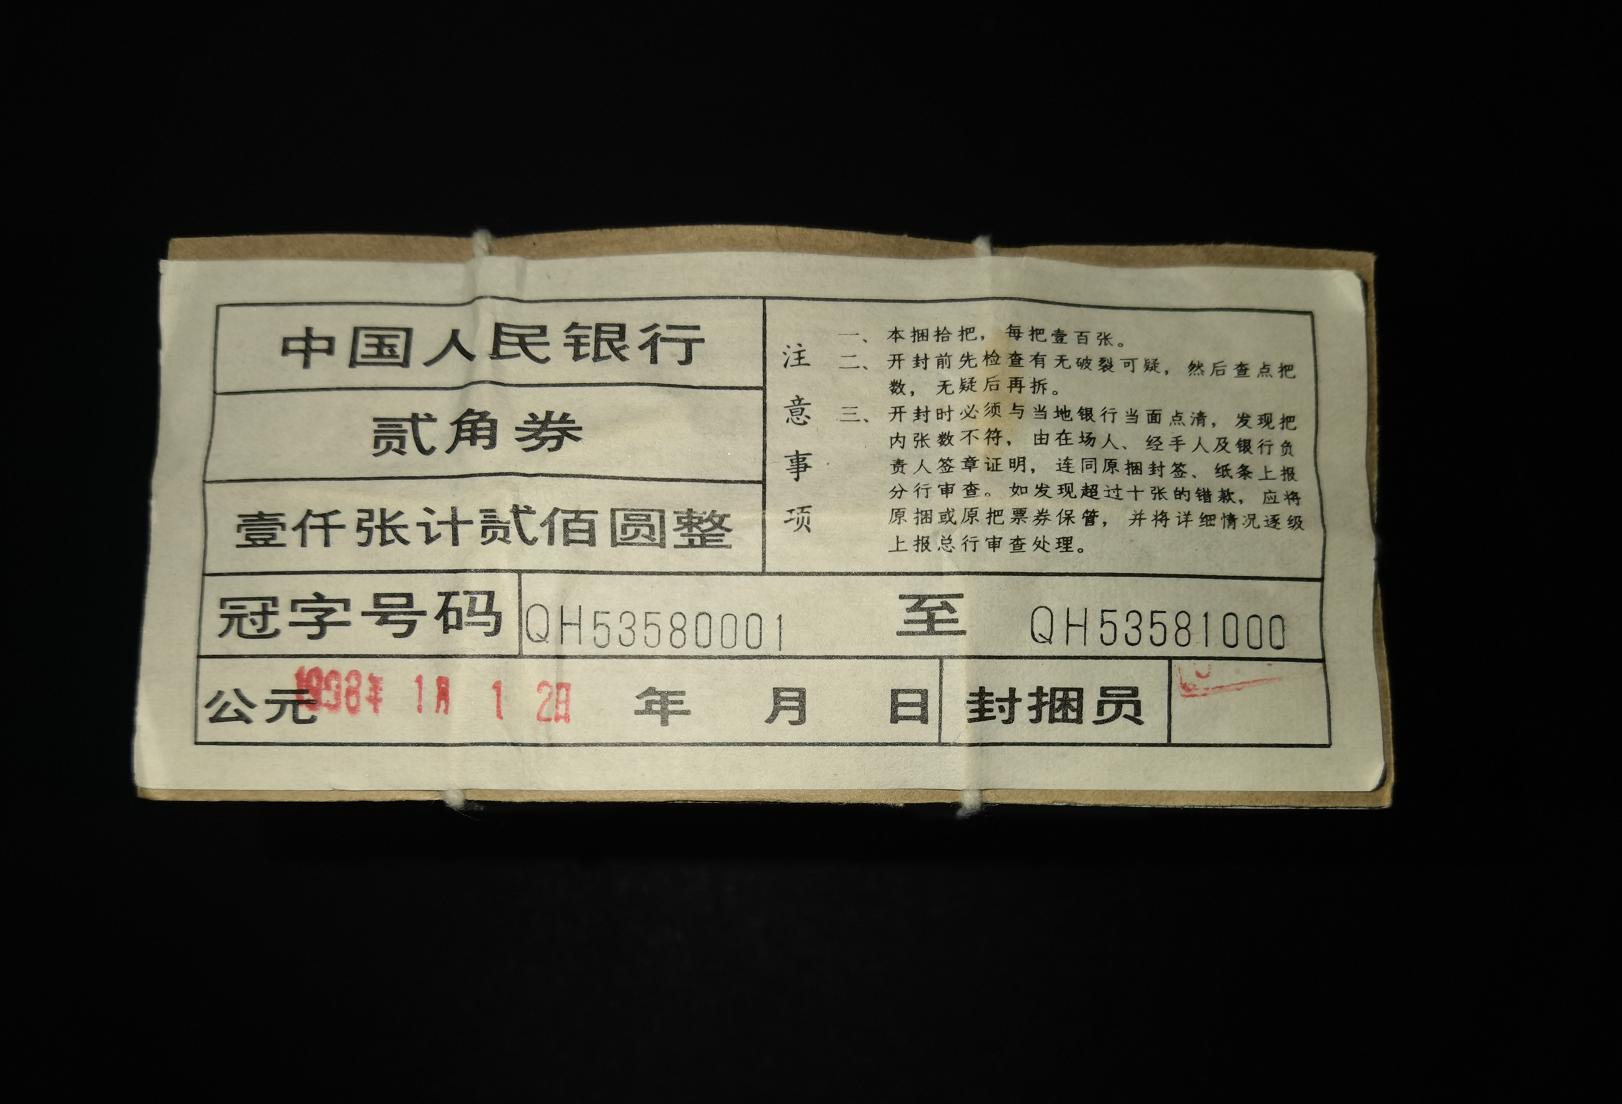 中国人民银行
贰角券
壹仟张计贰佰圆整
注意事项
一、本捆拾把，每把壹百张。
二、开封前先检查有无破裂可疑，然后查点把
数，无疑后再拆。
三、开封时必须与当地银行当面点清，发现把
内张数不符，由在场人、经手人及银行负
责人签章证明，连同原捆封签、纸条上报
分行审查。如发现超过十张的错款，应将
原捆或原把票券保管，并将详细情况逐级
上报总行审查处理。
冠字号码 QH53580001 至 QH53581000
公元 1998年 1月 12日 年 月 日 封捆员